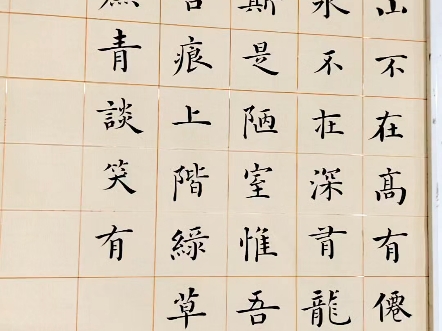 山不在高有僊
水不在深有龍
斯是陋室惟吾
苔痕上階綠草
簾青談笑有